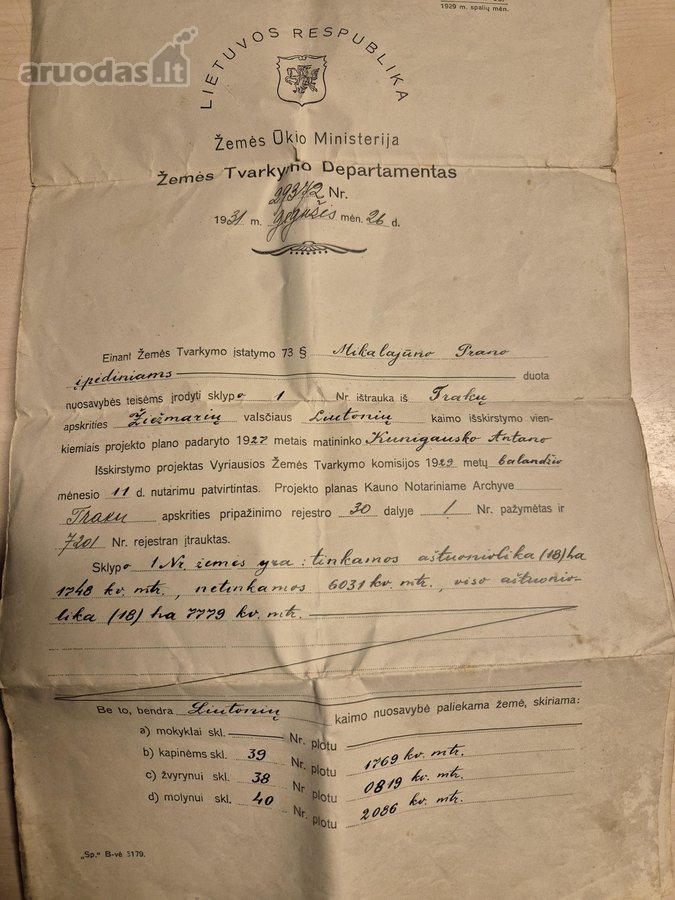 1929 m. spalių mėn.
aruodas.lt
LIETUVOS RESPUBLIKA
Žemės Ūkio Ministerija
Žemės Tvarkymo Departamentas
29372 Nr.
1931 m. Gegužės mėn. 26 d.
Einant Žemės Tvarkymo įstatymo 73 § Mikalajūno Prano
įpėdiniams duota
nuosavybės teisėms įrodyti sklypo 1 Nr. ištrauka iš Trakų
apskrities Žiežmarių valsčiaus Liutonių kaimo išskirstymo vien-
kiemiais projekto plano padaryto 1927 metais matininko Kunigausko Antano
Išskirstymo projektas Vyriausios Žemės Tvarkymo komisijos 1929 metų balandžio
mėnesio 11 d. nutarimu patvirtintas. Projekto planas Kauno Notariniame Archyve
Trakų apskrities pripažinimo rejestro 30 dalyje 1 Nr. pažymėtas ir
7201 Nr. rejestran įtrauktas.
Sklypo 1 Nr. žemės yra: tinkamos aštuoniolika (18) ha
1748 kv. mtr., netinkamos 6031 kv. mtr., viso aštuonio-
lika (18) ha 7779 kv. mtr.
Be to, bendra Liutonių kaimo nuosavybė paliekama žemė, skiriama:
a) mokyklai skl. Nr. plotu
b) kapinėms skl. 39 Nr. plotu 1769 kv. mtr.
c) žvyrynui skl. 38 Nr plotu 0819 kv. mtr.
d) molynui skl. 40 Nr. plotu 2086 kv. mtr.
„Sp." B-vė 5179.